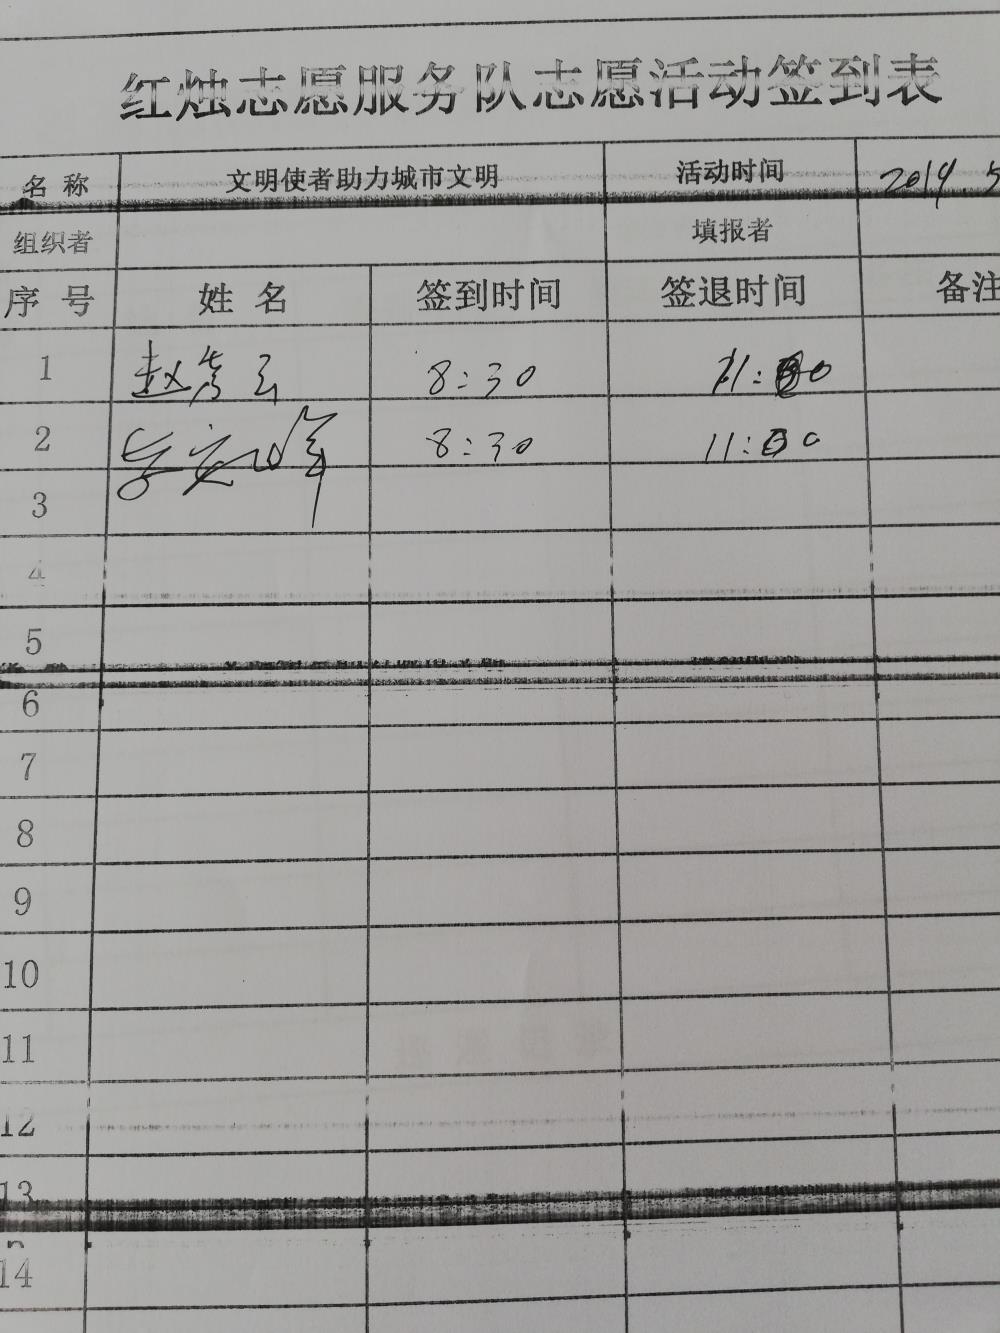 红烛志愿服务队志愿活动签到表
名 称 文明使者助力城市文明 活动时间 2019.5
组织者 填报者
序 号 姓 名 签到时间 签退时间 备注
1 赵 8:30 11:00
2 8:30 11:00
3
4
5
6
7
8
9
10
11
12
13
14